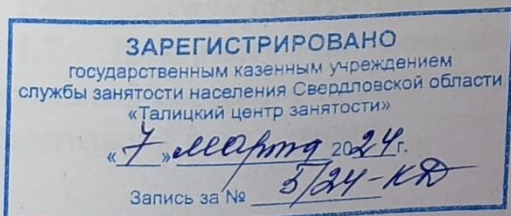 ЗАРЕГИСТРИРОВАНО
государственным казенным учреждением
службы занятости населения Свердловской области
«Талицкий центр занятости»
«7» марта 2024г.
Запись за № 5/24-КД